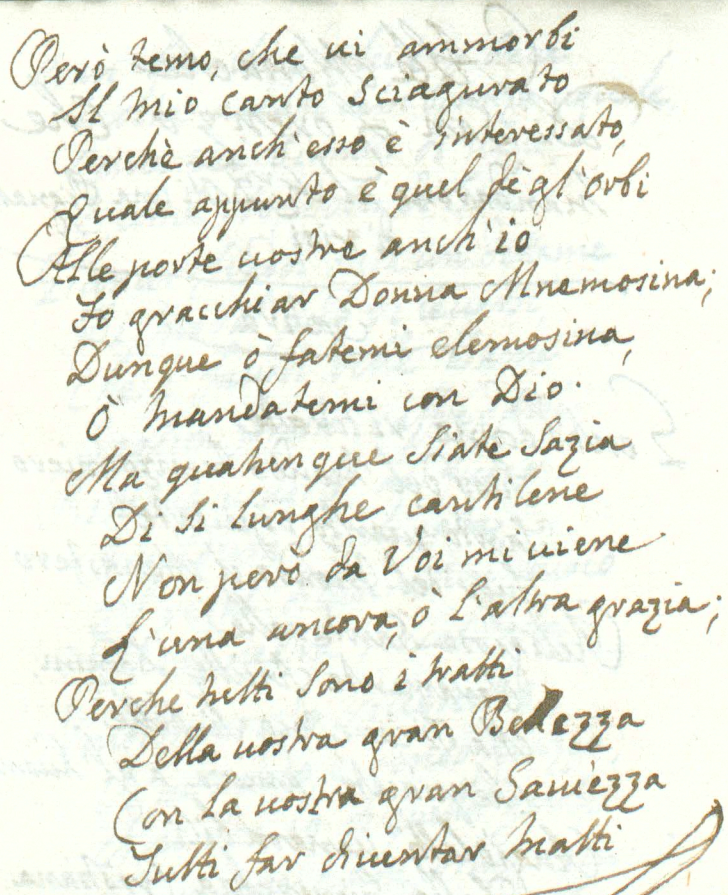 Però temo, che vi ammorbi
Il mio canto sciagurato
Perchè anch'esso è interessato,
Quale appunto è quel degl'orbi
Alle porte vostre anch'io
Fo gracchiar Donna Mnemosina;
Dunque ò fatemi elemosina,
Ò mandatemi con Dio.
Ma qualunque siate sazia
Di sì lunghe cantilene
Non però da Voi mi viene
L'una ancora, ò l'altra grazia;
Perche tutti sono i tratti
Della vostra gran Bellezza
Con la vostra gran Saviezza
Tutti far diventar matti